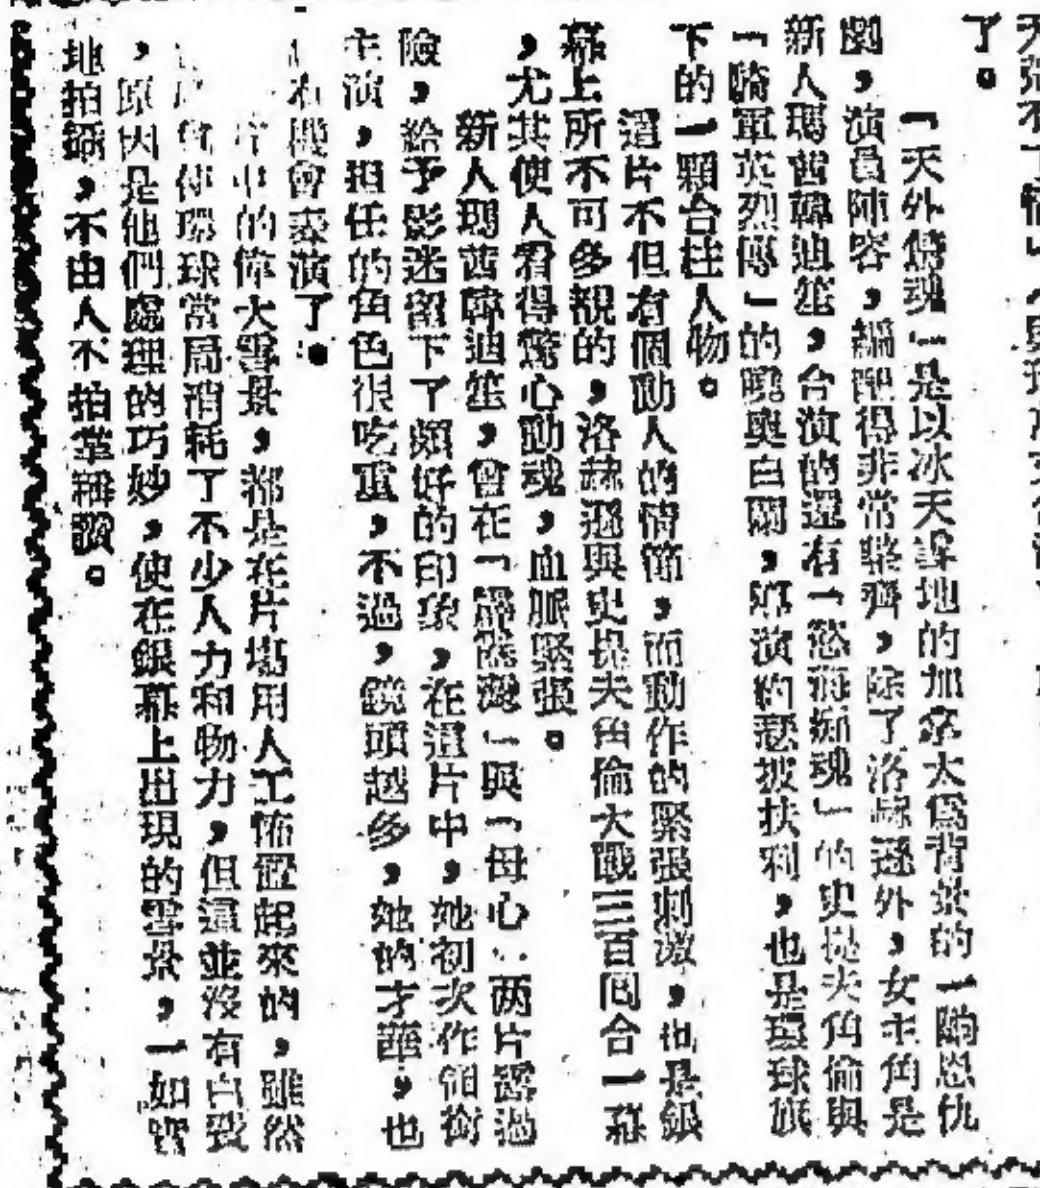 了。
「天外情魂」是以冰天雪地的加拿大爲背景的一齣恩仇
劇，演員陣容，編配得非常整齊，除了洛赫遜外，女主角是
新人瑪茜韓迪笙，合演的還有「慾海痴魂」的史提夫角倫與
「騎軍英烈傳」的曉與白爾，飾演的惡披扶利，也是環球旗
下的一顆台柱人物。
這片不但有個動人的情節，而動作的緊張刺激，也是銀
幕上所不可多觀的，洛赫遜與史提夫角倫大戰三百回合一幕
，尤其使人看得驚心動魂，血脈緊張。
新人瑪茜韓迪笙，曾在「與「母心」两片露過
險，給予影迷留下了頗好的印象，在這片中，她初次作領銜
主演，担任的角色很吃重，不過，鏡頭越多，她的才華，也
有機會表演了。
片中的偉大雪景，都是在片塲用人工佈置起來的，雖然
會使環球當局消耗了不少人力和物力，但這並沒有白費
，原因是他們處理的巧妙，使在銀幕上出現的雪景，一如實
地拍攝，不由人不拍掌稱讚。